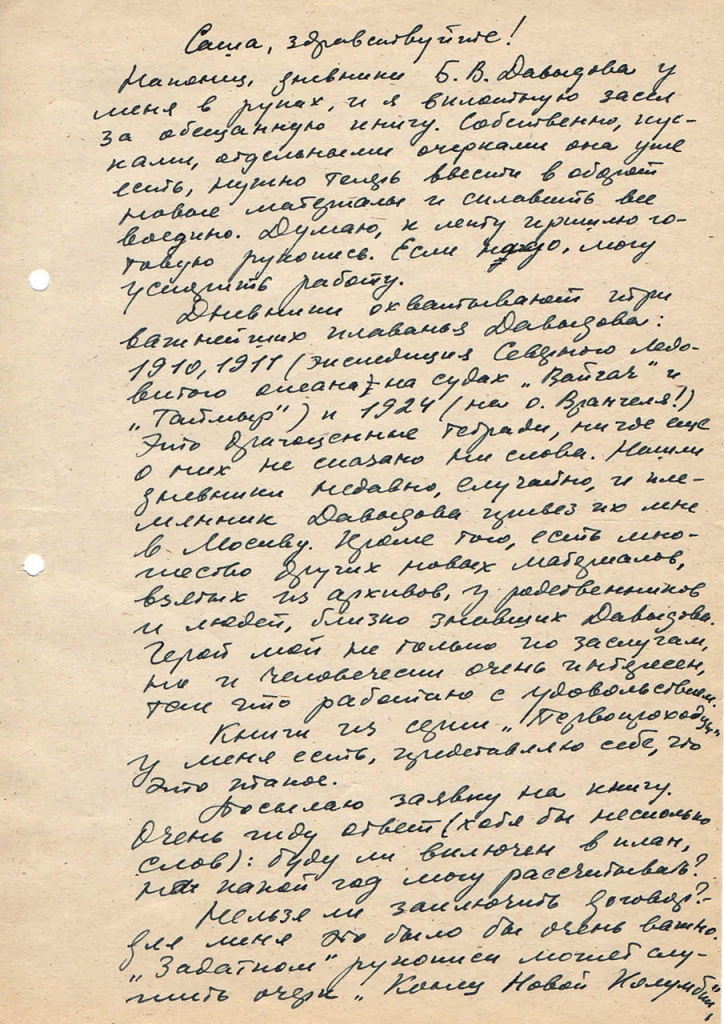 Саша, здравствуйте!
Наконец, дневники Б. В. Давыдова у
меня в руках, и я вплотную засел
за обещанную книгу. Собственно, кус-
ками, отдельными очерками она уже
есть, нужно теперь ввести в оборот
новые материалы и сплавить все
воедино. Думаю, к лету пришлю го-
товую рукопись. Если надо, могу
ускорить работу.
Дневники охватывают три
важнейших плаванья Давыдова:
1910, 1911 (экспедиция Северного Ледо-
витого океана) - на судах „Вайгач" и
„Таймыр") и 1924 (на о. Врангеля!)
Это драгоценные тетради, нигде еще
о них не сказано ни слова. Нашли
дневники недавно, случайно, и пле-
мянник Давыдова привез их мне
в Москву. Кроме того, есть мно-
жество других новых материалов,
взятых из архивов, у родственников
и людей, близко знавших Давыдова.
Герой мой не только по заслугам,
но и человечески очень интересен,
так что работаю с удовольствием.
Книги из серии „Первопроходцы"
у меня есть, представляю себе, что
это такое.
Посылаю заявку на книгу.
Очень жду ответ (хотя бы несколько
слов): буду ли включен в план,
на какой год могу рассчитывать?
Нельзя ли заключить договор? -
для меня это было бы очень важно.
„Задатком" рукописи может слу-
жить очерк „Конец Новой Колумбии",